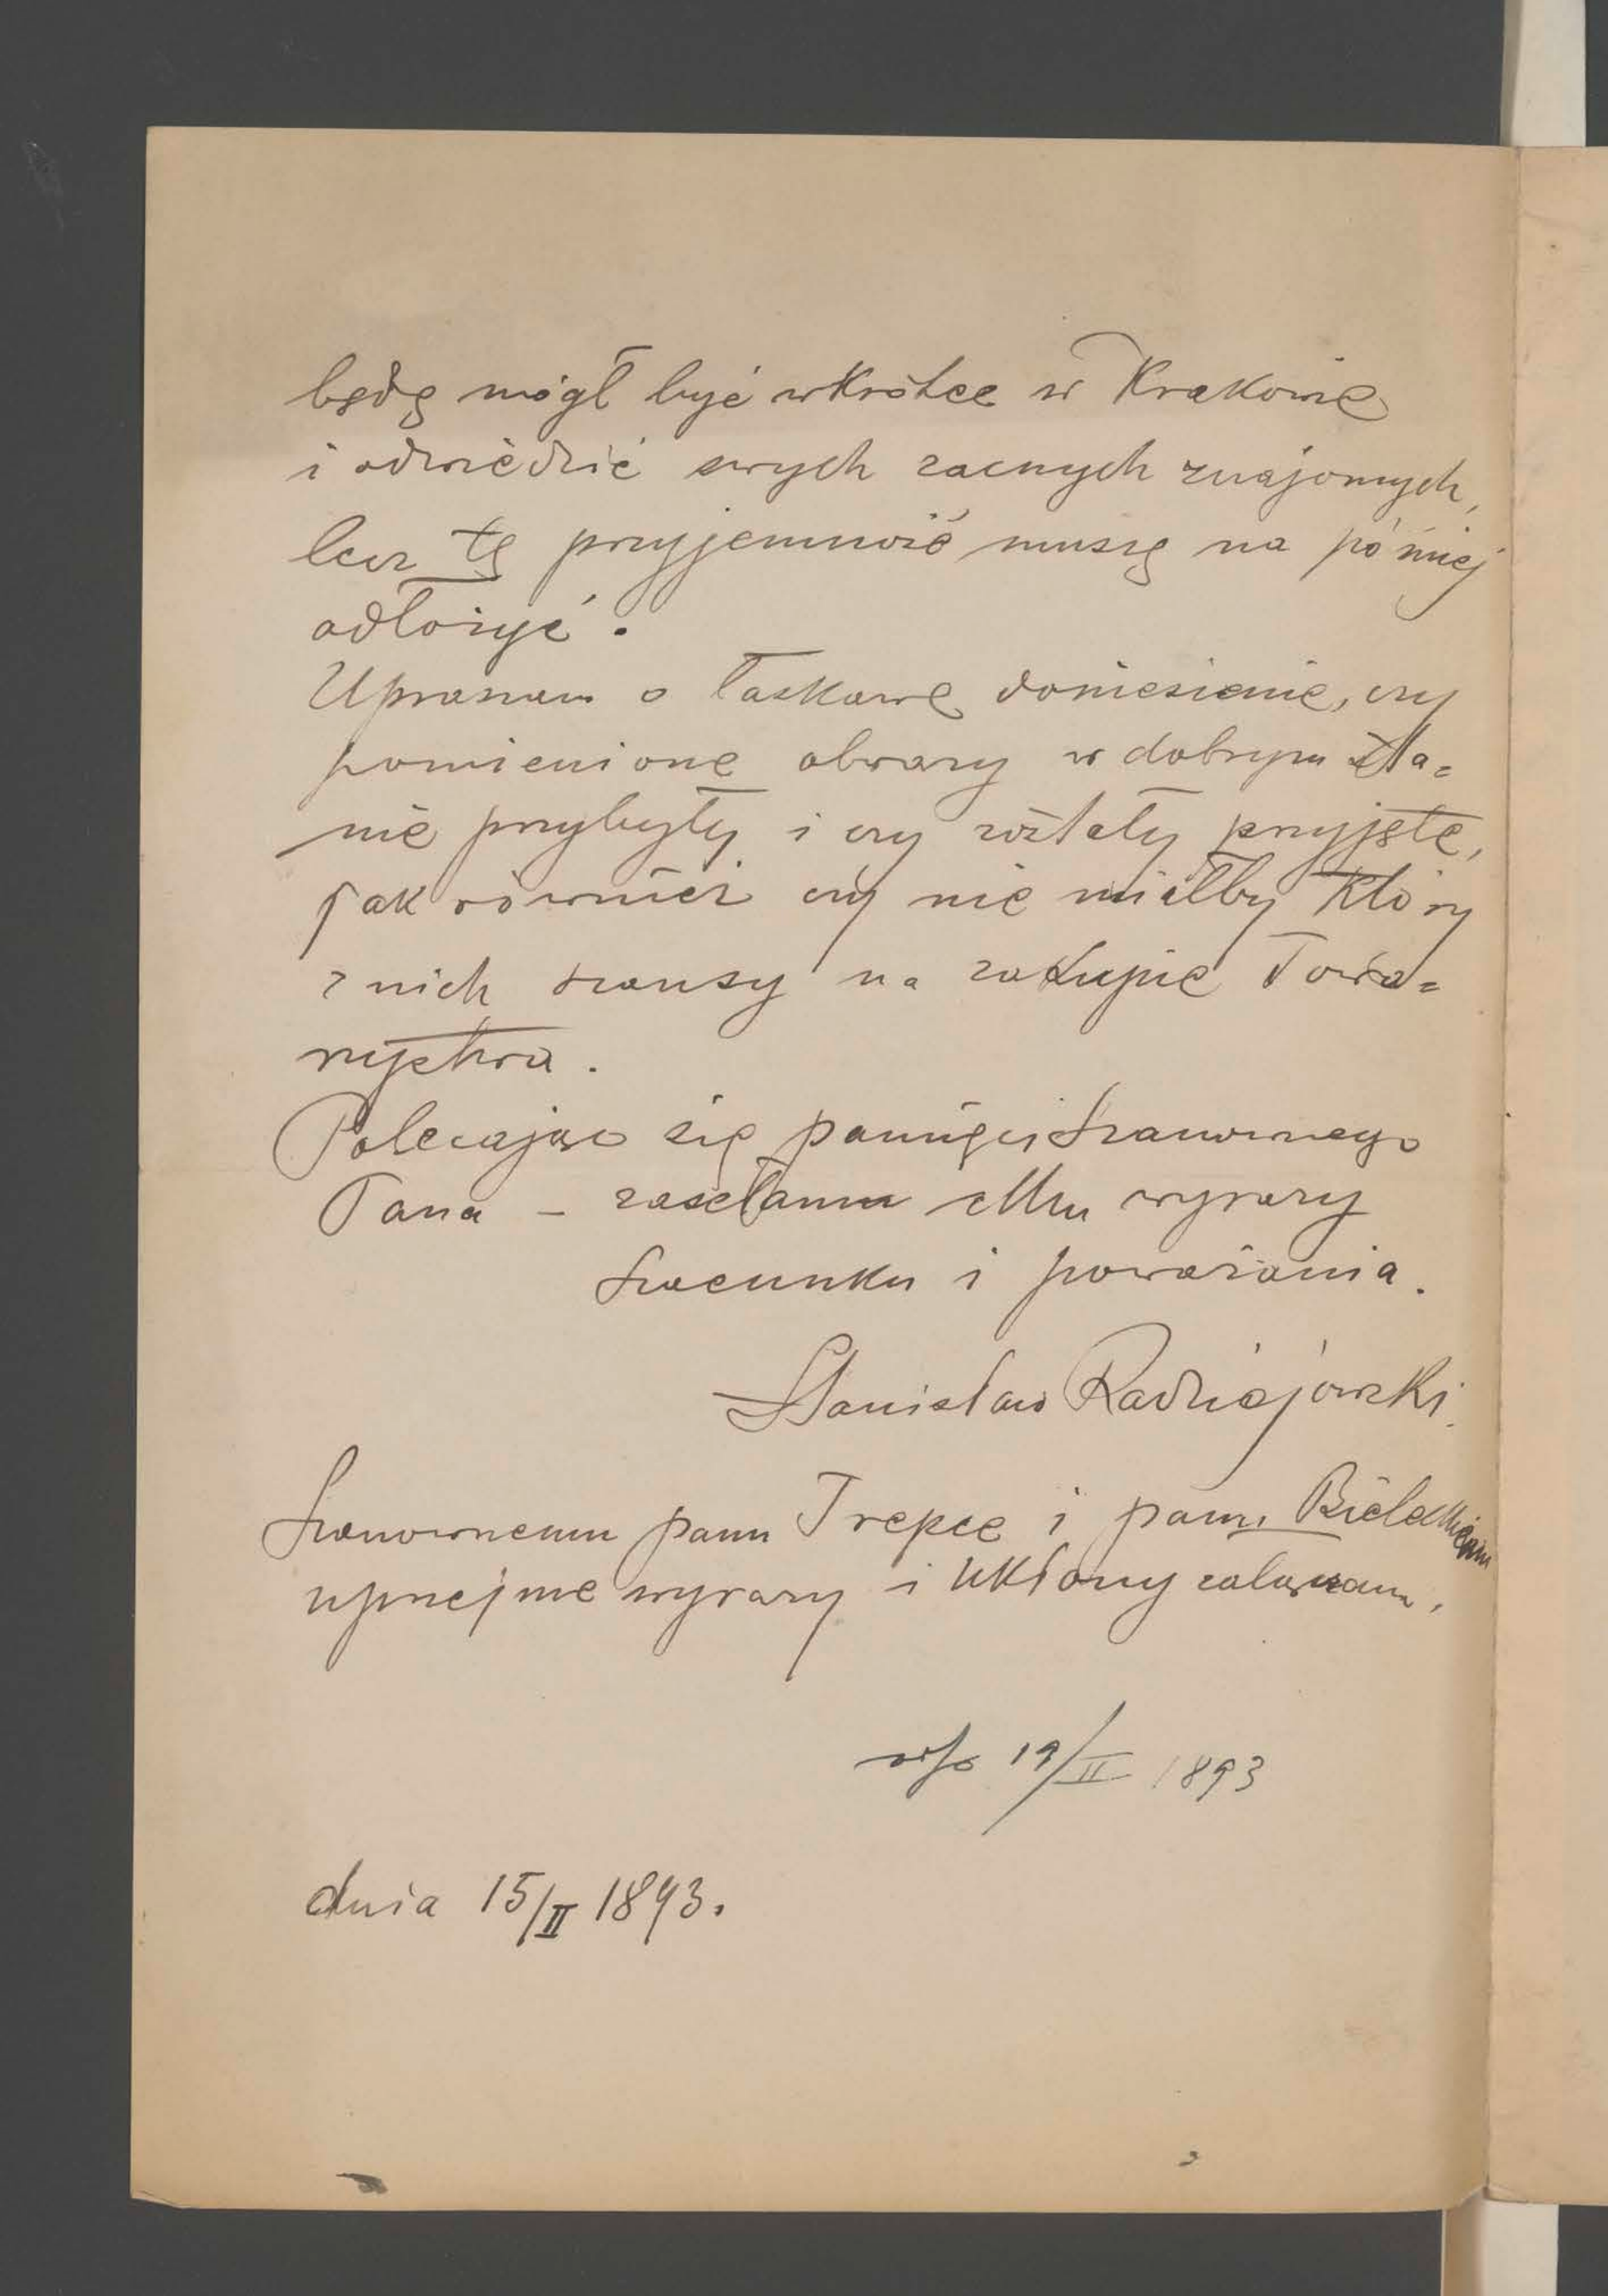 będę mógł być wkrótce w Krakowie
i odwiedzić swych zacnych znajomych,
lecz tę przyjemność muszę na później
odłożyć.
Upraszam o łaskawe doniesienie, czy
pomienione obrazy w dobrym sta=
nie przybyły i czy zostały przyjęte,
jak również czy nie miałby który
z nich szansy na zakupie Towa=
rzystwa.
Polecając się pamięci Szanownego
Pana – zasełam Mu wyrazy
szacunku i poważania.
Stanisław Radziejowski.
Szanownemu panu Trepce i panu Bieleckiemu
uprzejme wyrazy i ukłony załączam.
19/II 1893
dnia 15/II 1893.